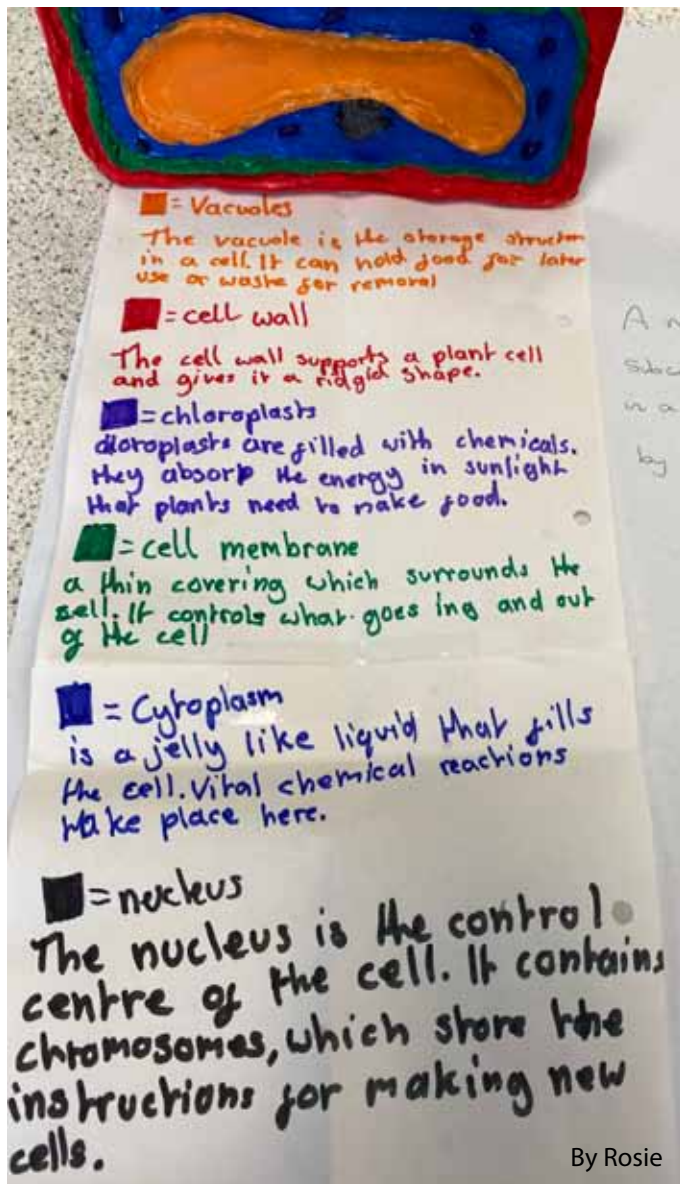 = Vacuoles
The vacuole is the storage structer
in a cell. It can hold food for later
use or waste for removal
= cell wall
The cell wall supports a plant cell
and gives it a ridgid shape.
= chloroplasts
chloroplasts are filled with chemicals.
they absorp the energy in sunlight
that plants need to make food.
= cell membrane
a thin covering which surrounds the
sell. It controls what goes ing and out
of the cell
= Cytoplasm
is a jelly like liquid that fills
the cell. Vital chemical reactions
take place here.
= nucleus
The nucleus is the control
centre of the cell. It contains
chromosomes, which store the
instructions for making new
cells.
A
in a
by
By Rosie